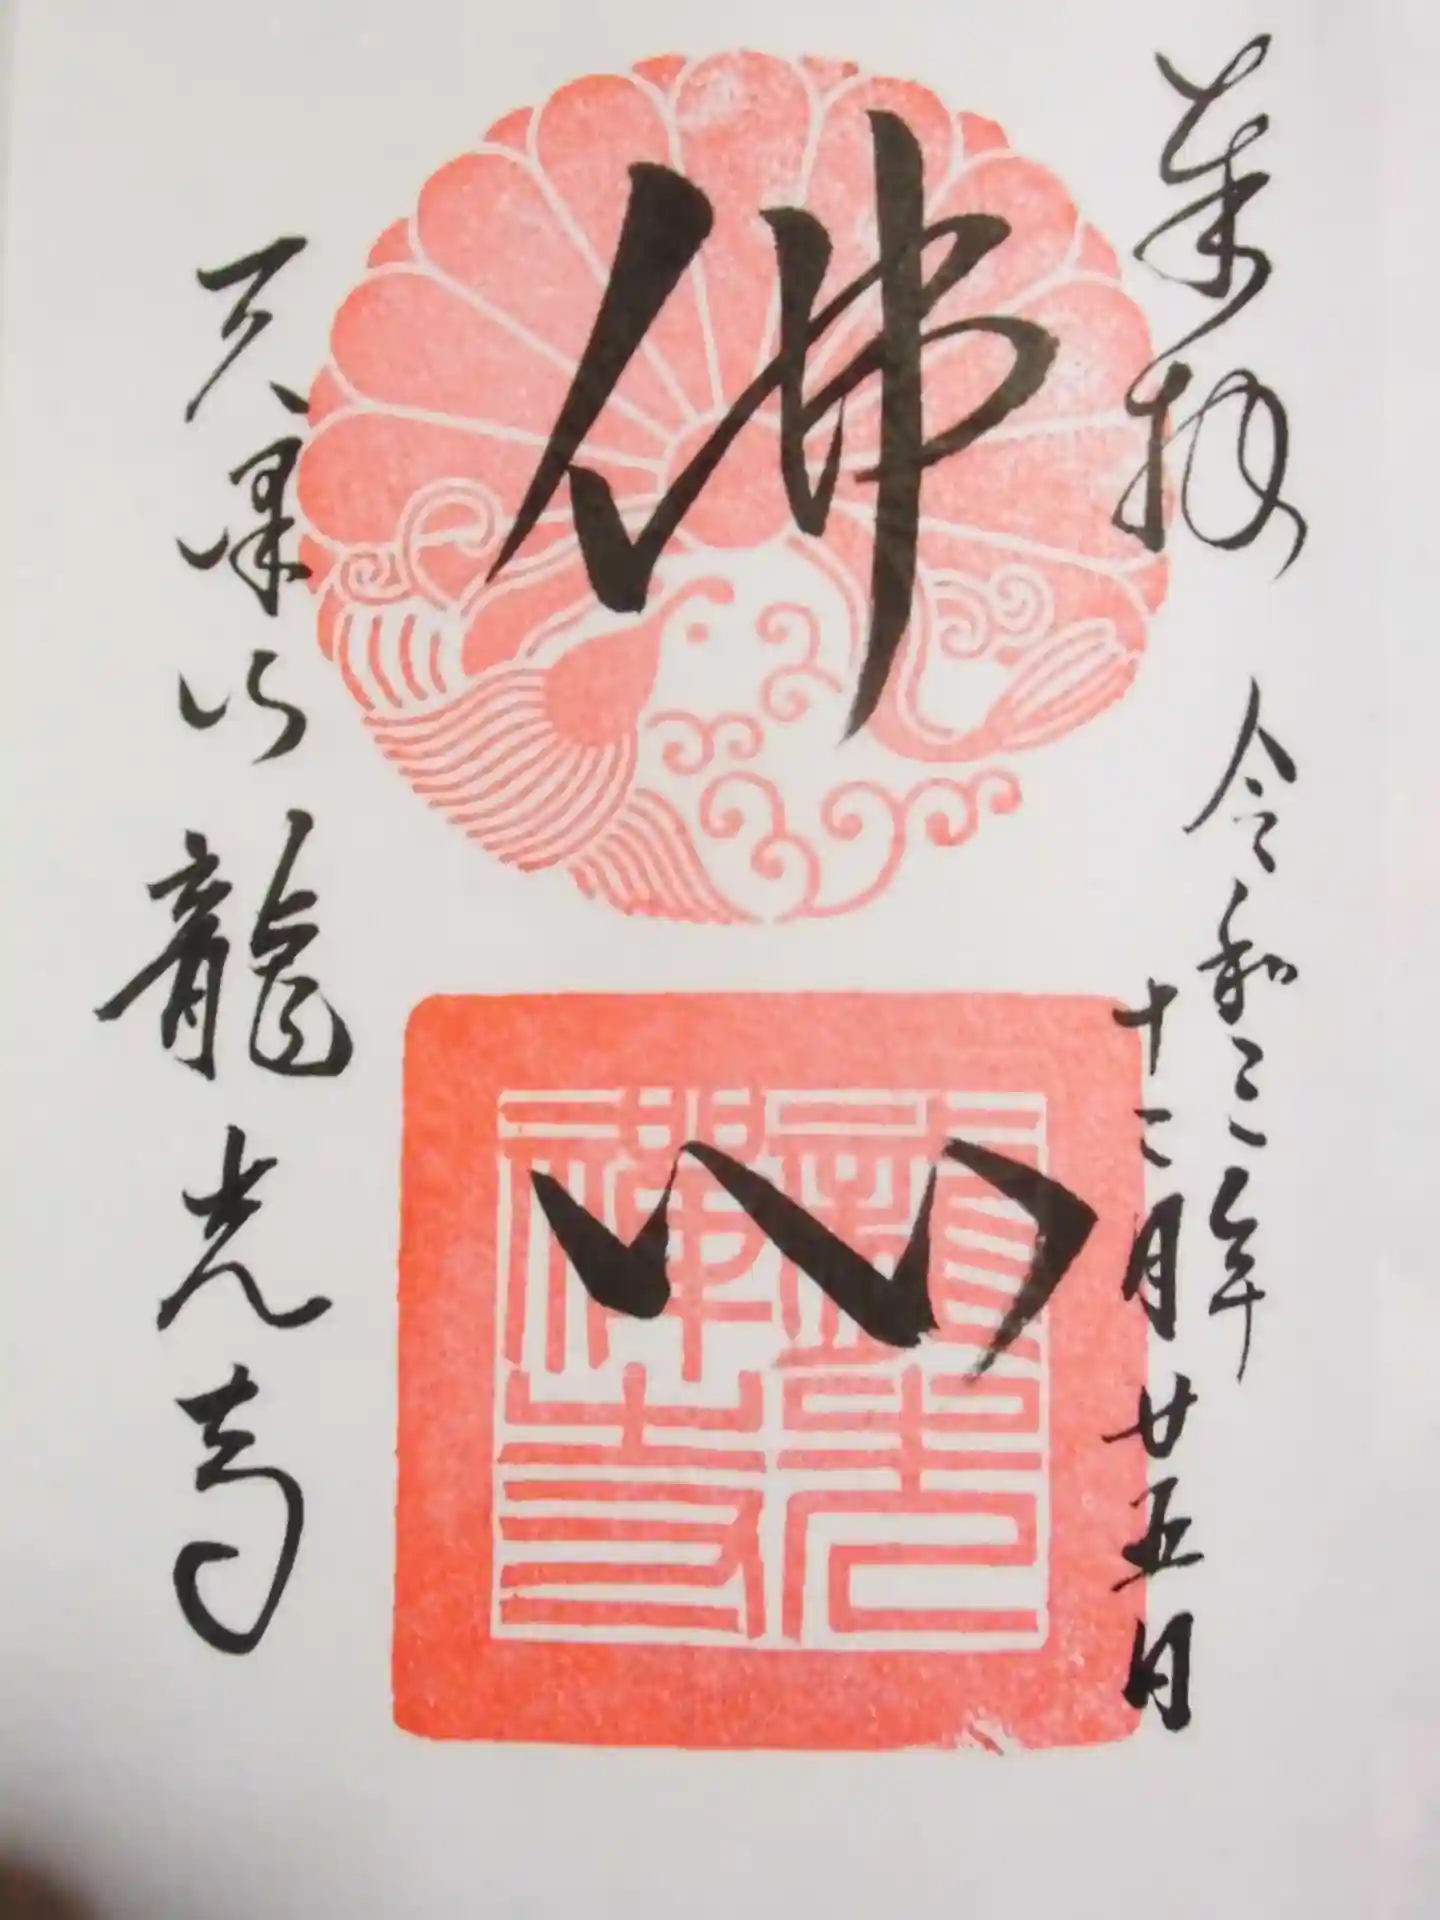 奉拝
令和三年
十二月廿五日
佛心
龍光
禪寺
天澤山龍光寺